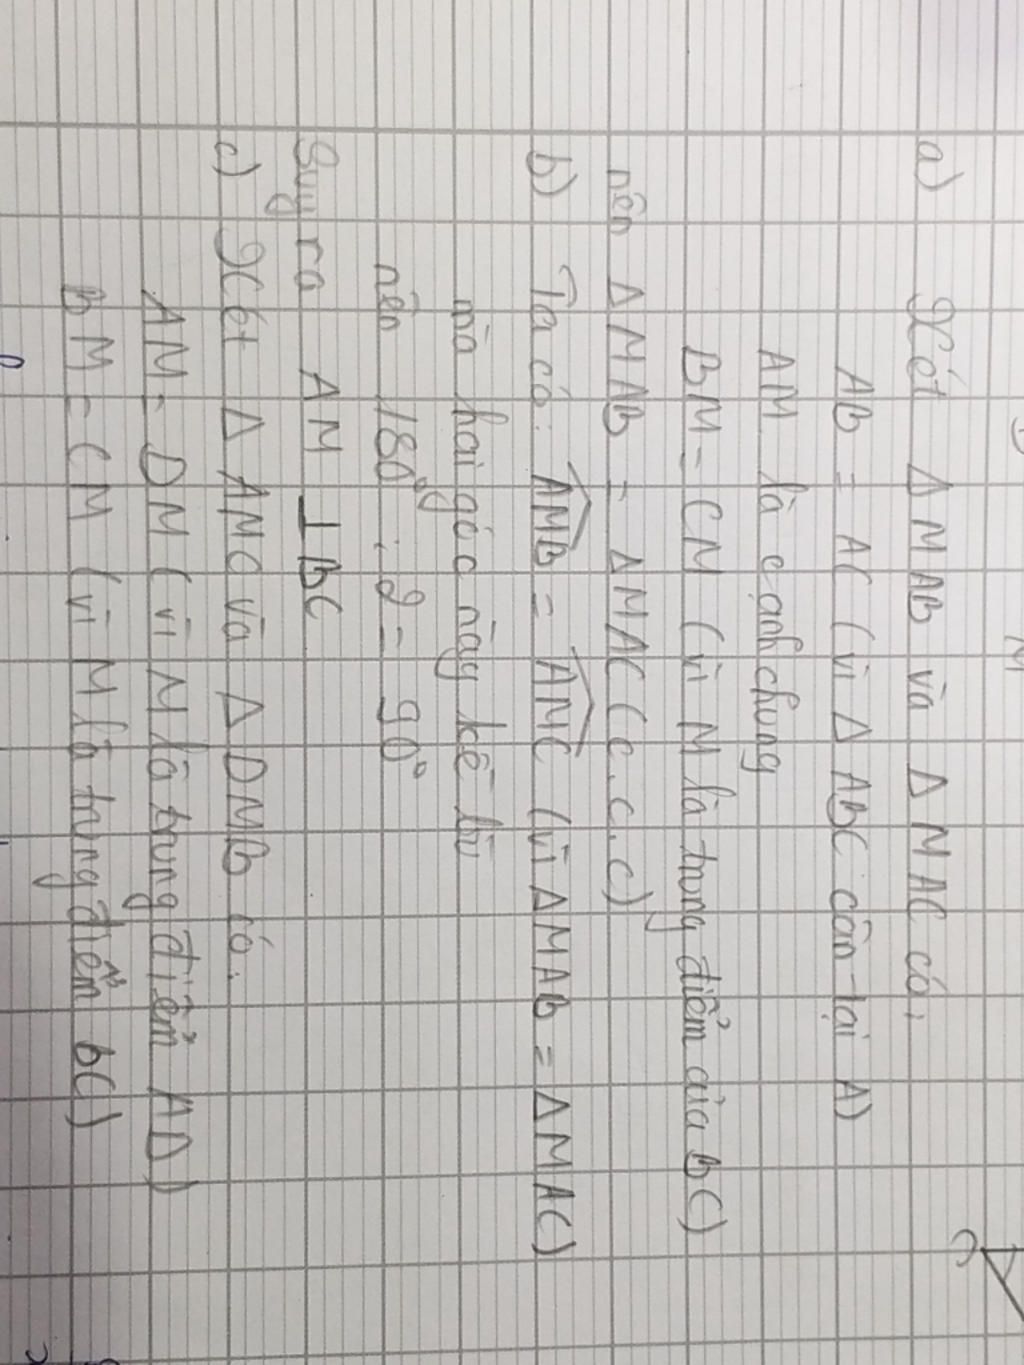 D
M
C
a) Xét Δ MAB và Δ MAC có:
AB = AC (vì Δ ABC cân tại A)
AM là cạnh chung
BM = CM (vì M là trung điểm của BC)
nên Δ MAB = Δ MAC (c.c.c)
b) Ta có: AMB = AMC (vì Δ MAB = Δ MAC)
mà hai góc này kề bù
nên 180° : 2 = 90°
Suy ra AM ⊥ BC
c) Xét Δ AMC và Δ DMB có:
AM = DM (vì M là trung điểm AD)
BM = CM (vì M là trung điểm BC)